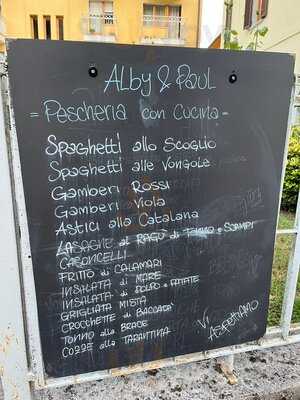 ALBY & PAUL
= PESCHERIA CON CUCINA =
SPAGHETTI allo SCOGLIO
SPAGHETTI alle VONGOLE
GAMBERI ROSSI
GAMBERI VIOLA
ASTICI alla CATALANA
LASAGNE al RAGÙ di TONNO e SCAMPI
CASONCELLI
FRITTO di CALAMARI
INSALATA di MARE
INSALATA di POLPO e PATATE
GRIGLIATA MISTA
CROCCHETTE di BACCALÀ
TONNO alla BRACE
COZZE alla TARANTINA
VI
ASPETTIAMO